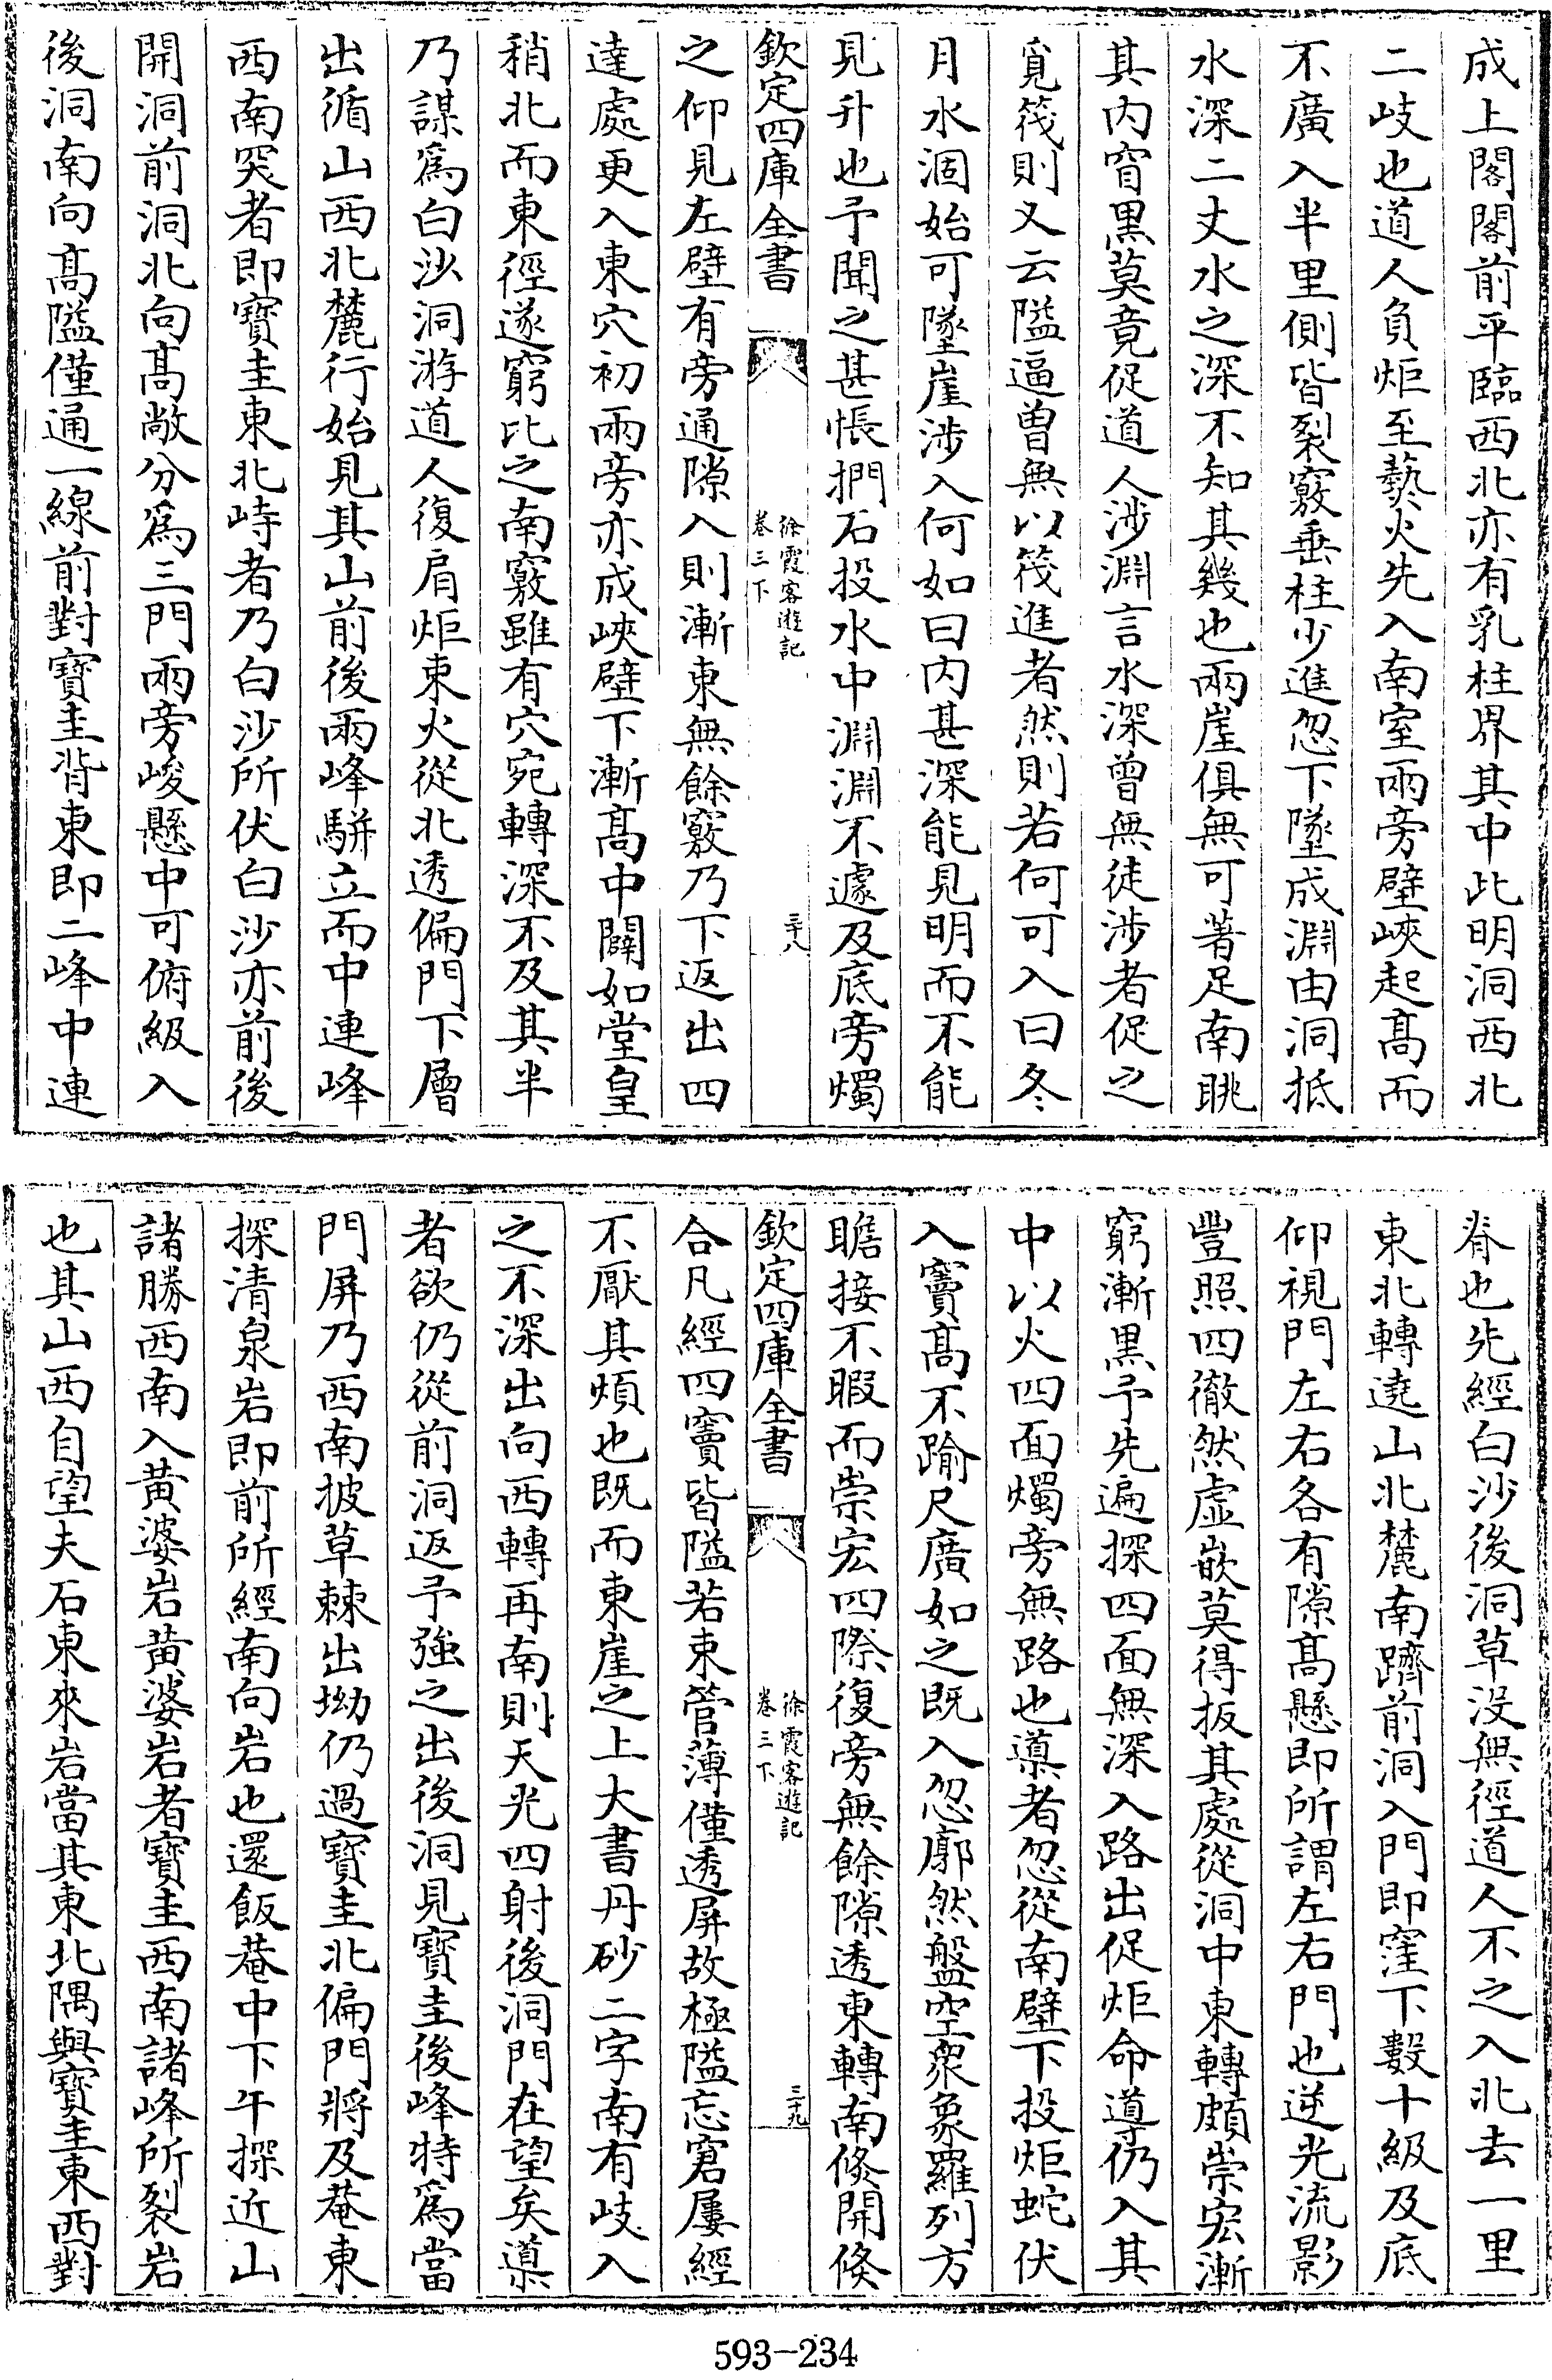 成上閣閣前平臨西北亦有乳柱界其中此明洞西北
二岐也道人負炬至爇火先入南室兩旁壁峽起髙而
不廣入半里側皆裂竅垂柱少進忽下墜成淵由洞抵
水深二丈水之深不知其幾也兩崖俱無可著足南眺
其内窅黒莫竟促道人涉淵言水深曾無徒涉者促之
覔筏則又云隘逼曽無以筏進者然則若何可入曰冬
月水涸始可墜崖涉入何如曰内甚深能見明而不能
見升也予聞之甚悵捫石投水中淵淵不遽及底旁燭
欽定四庫全書
徐霞客遊記
卷三下
三十八
之仰見左壁有旁通隙入則漸東無餘竅乃下返出四
達處更入東穴初兩旁亦成峽壁下漸髙中闢如堂皇
稍北而東徑遂窮比之南竅雖有穴宛轉深不及其半
乃謀爲白沙洞游道人復肩炬束火從北透偏門下層
出循山西北麓行始見其山前後兩峰騈立而中連峰
西南突者即寶圭東北峙者乃白沙所伏白沙亦前後
開洞前洞北向髙敞分爲三門兩旁峻懸中可俯級入
後洞南向髙隘僅通一線前對寶圭背東即二峰中連
脊也先經白沙後洞草没無徑道人不之入北去一里
東北轉遶山北麓南躋前洞入門即窪下數十級及底
仰視門左右各有隙髙懸即所謂左右門也逆光流影
豐照四徹然虚嵌莫得扳其處從洞中東轉頗崇宏漸
窮漸黒予先遍探四面無深入路出促炬命導仍入其
中以火四面燭旁無路也導者忽從南壁下投炬蛇伏
入竇髙不踰尺廣如之既入忽廓然盤空衆象羅列方
瞻接不暇而崇宏四際復旁無餘隙透東轉南倐開倐
欽定四庫全書
徐霞客遊記
卷三下
三十九
合凡經四竇皆隘若束管薄僅透屏故極隘忘窘屢經
不厭其煩也既而東崖之上大書丹砂二字南有岐入
之不深出向西轉再南則天光四射後洞門在望矣導
者欲仍從前洞返予強之出後洞見寶圭後峰特爲當
門屏乃西南披草棘出坳仍過寶圭北偏門將及菴東
探清泉岩即前所經南向岩也還飯菴中下午探近山
諸勝西南入黄婆岩黄婆岩者寶圭西南諸峰所裂岩
也其山西自望夫石東來岩當其東北隅與寶圭東西對
593-234